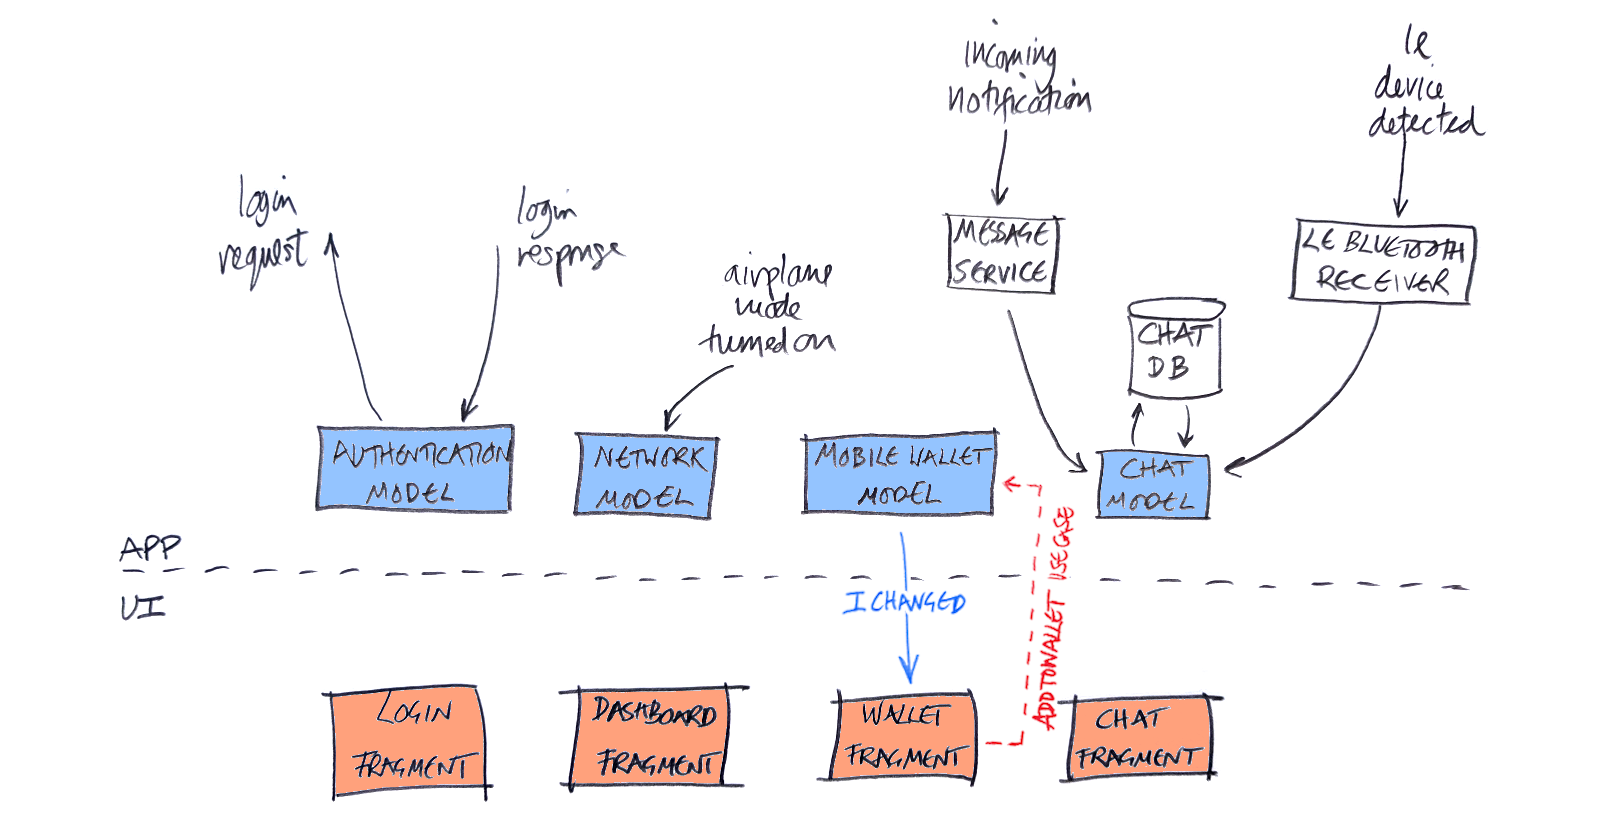 incoming
notification
le
device
detected
login
request
login
response
airplane
mode
turned on
MESSAGE
SERVICE
LE BLUETOOTH
RECEIVER
CHAT
DB
AUTHENTICATION
MODEL
NETWORK
MODEL
MOBILE WALLET
MODEL
CHAT
MODEL
APP
UI
I CHANGED
ADDTOWALLET USECASE
LOGIN
FRAGMENT
DASHBOARD
FRAGMENT
WALLET
FRAGMENT
CHAT
FRAGMENT